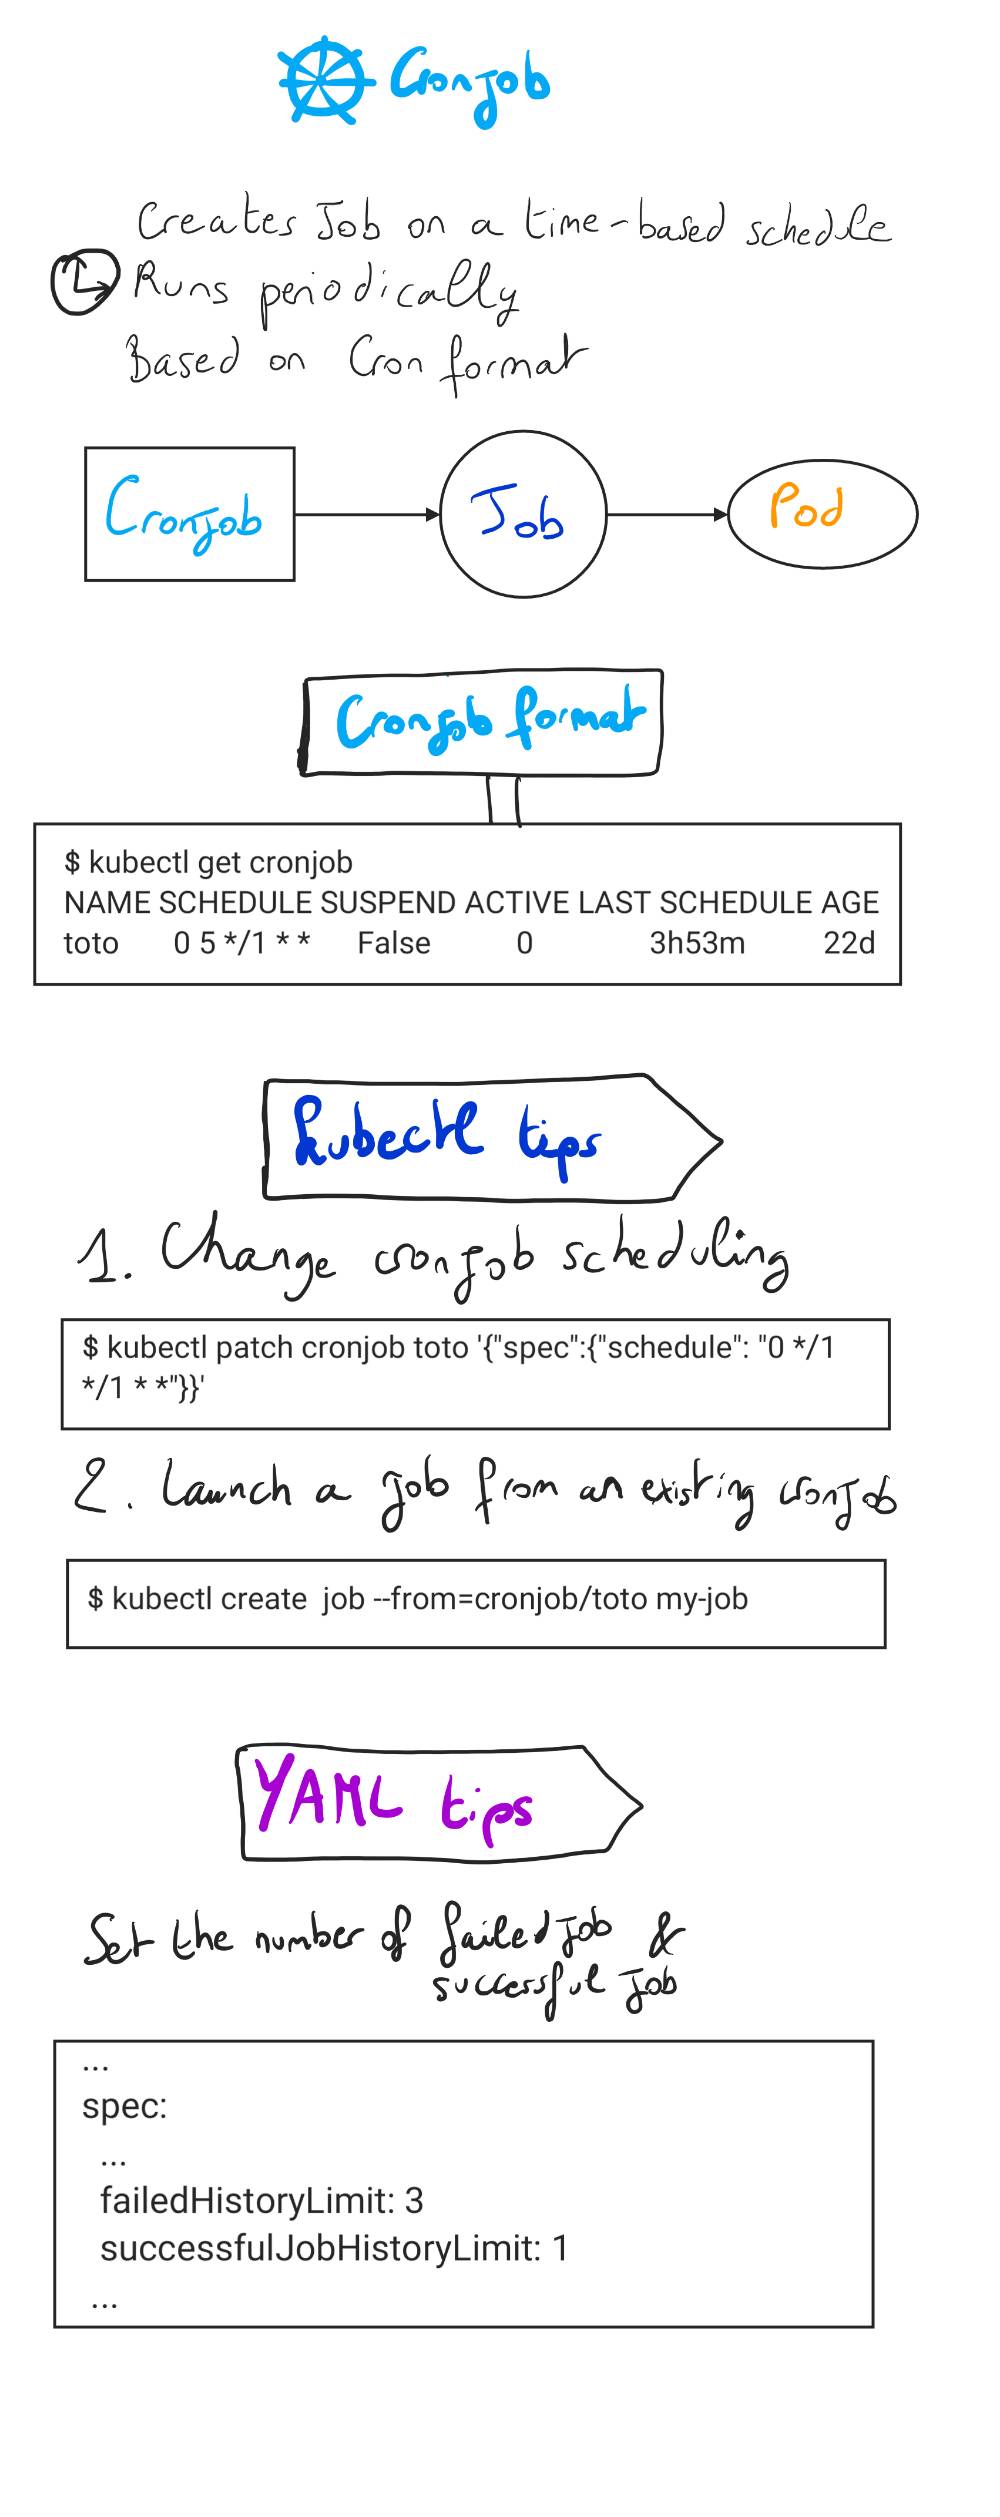 Cronjob
Creates Job on a time-based schedule
Runs periodically
Based on Cron format
Cronjob
Job
Pod
Cronjob format
$ kubectl get cronjob
NAME SCHEDULE SUSPEND ACTIVE LAST SCHEDULE AGE
toto 0 5 */1 * * False 0 3h53m 22d
Kubectl tips
1. Change cronjob scheduling
$ kubectl patch cronjob toto '{"spec":{"schedule": "0 */1
*/1 * *"}}'
2. Launch a job from an existing cronJob
$ kubectl create  job --from=cronjob/toto my-job
YAML tips
Set the number of failed Job &
successful Job
...
spec:
...
failedHistoryLimit: 3
successfulJobHistoryLimit: 1
...